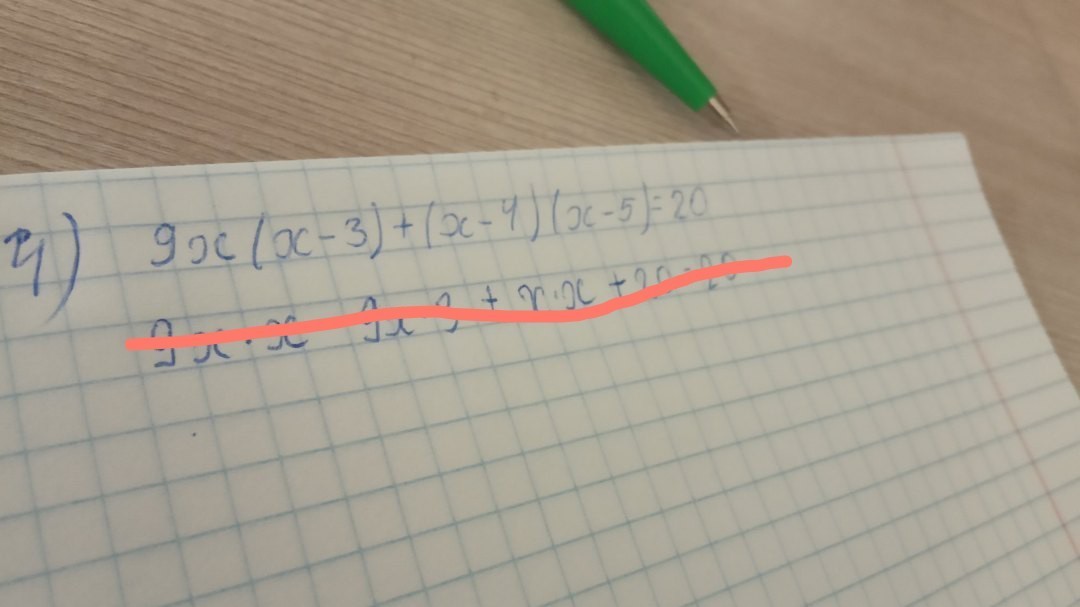 4) 9x(x-3)+(x-4)(x-5)=20
9x·x-9x·3+x·x+20=20